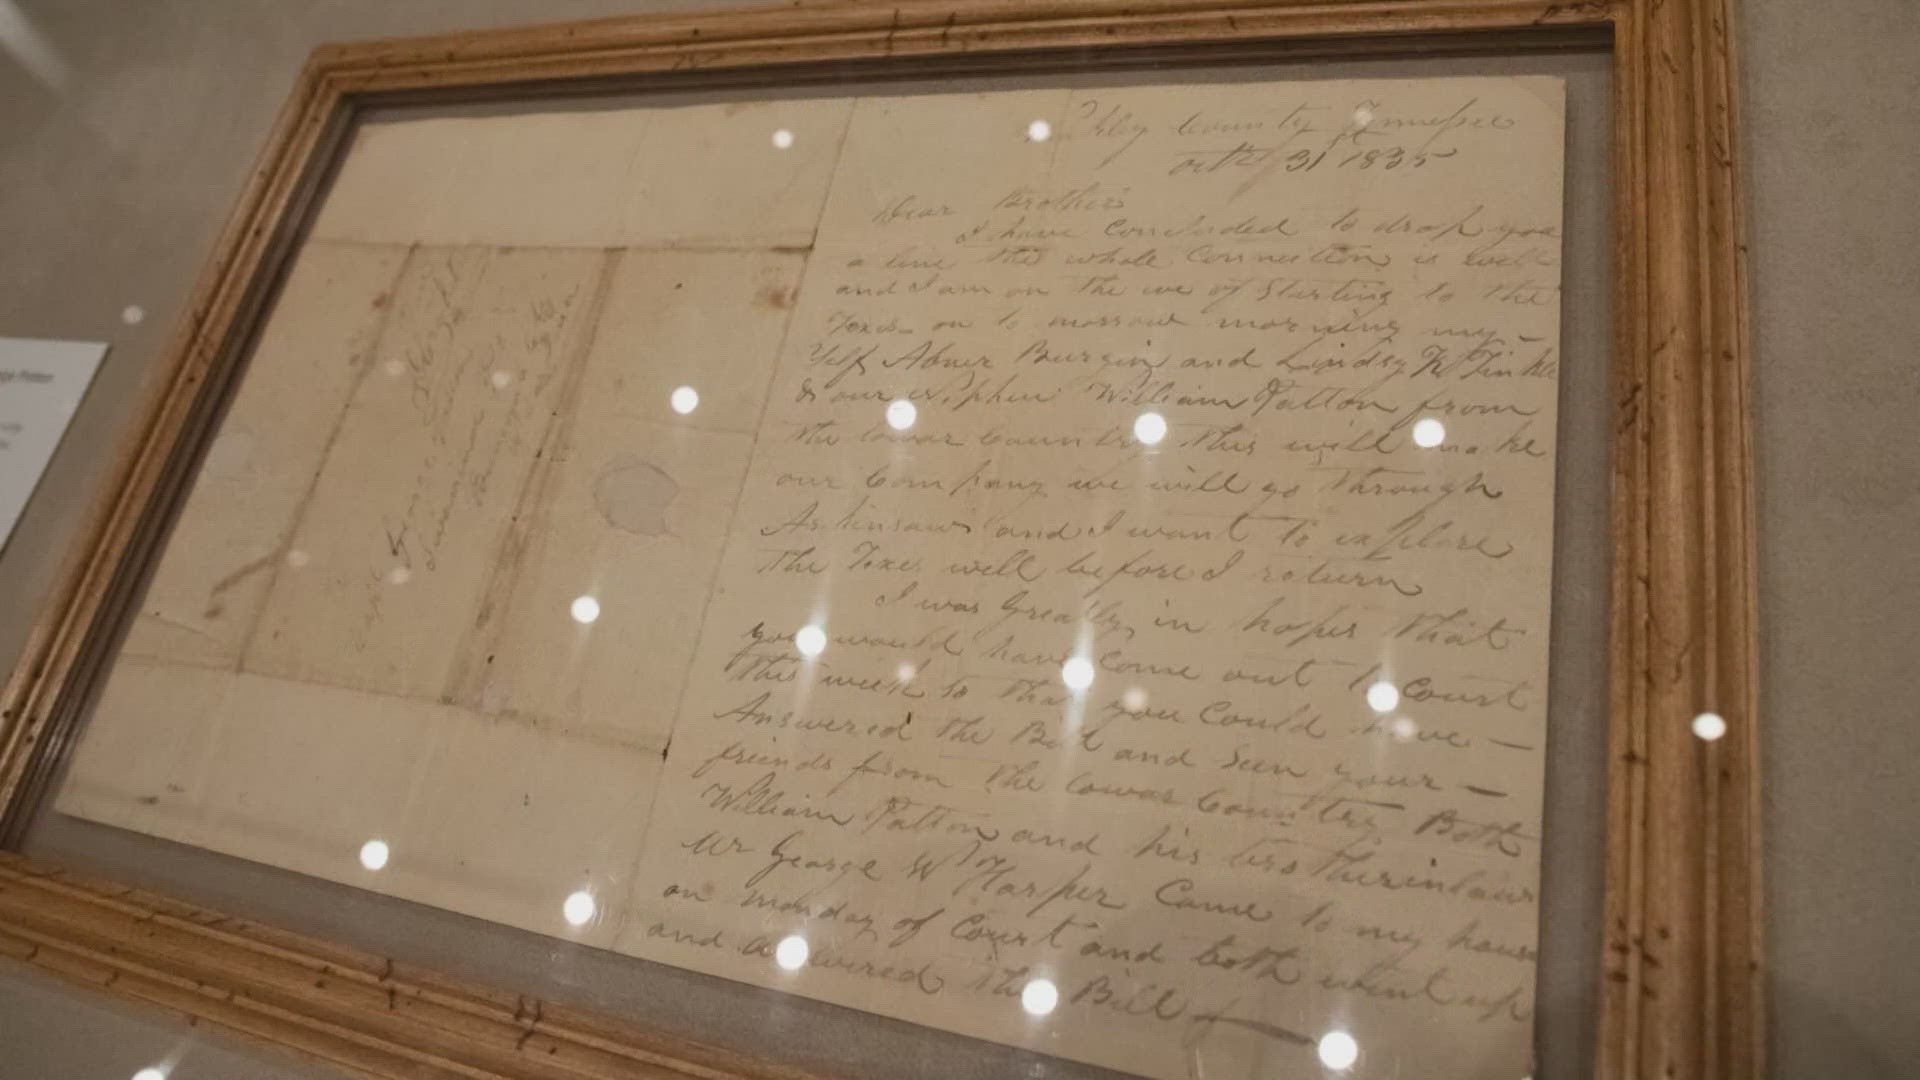 County Tennessee
octbr 31st 1835
Dear Brother
I have Concluded to drop you
a line the whole Connection is well
and I am on the eve of Starting to the
Texes on to morrow morning my -
Self Abner Burgin and Lindsy K Tinkle
& our Nephew William Patton from
the lowar Country this will make
our Company we will go through
Arkinsaw and I want to explore
the Texes well before I return
I was Greatly in hopes that
you would have Come out to Court
this week so that you Could have -
Answered the Bill and Seen your -
friends from the lowar Country Both
William Patton and his brotherinlaw
Mr George W Harper Came to my house
on monday of Court and both went up
and answered the Bill
George Patton
Swannanoa
Buncombe